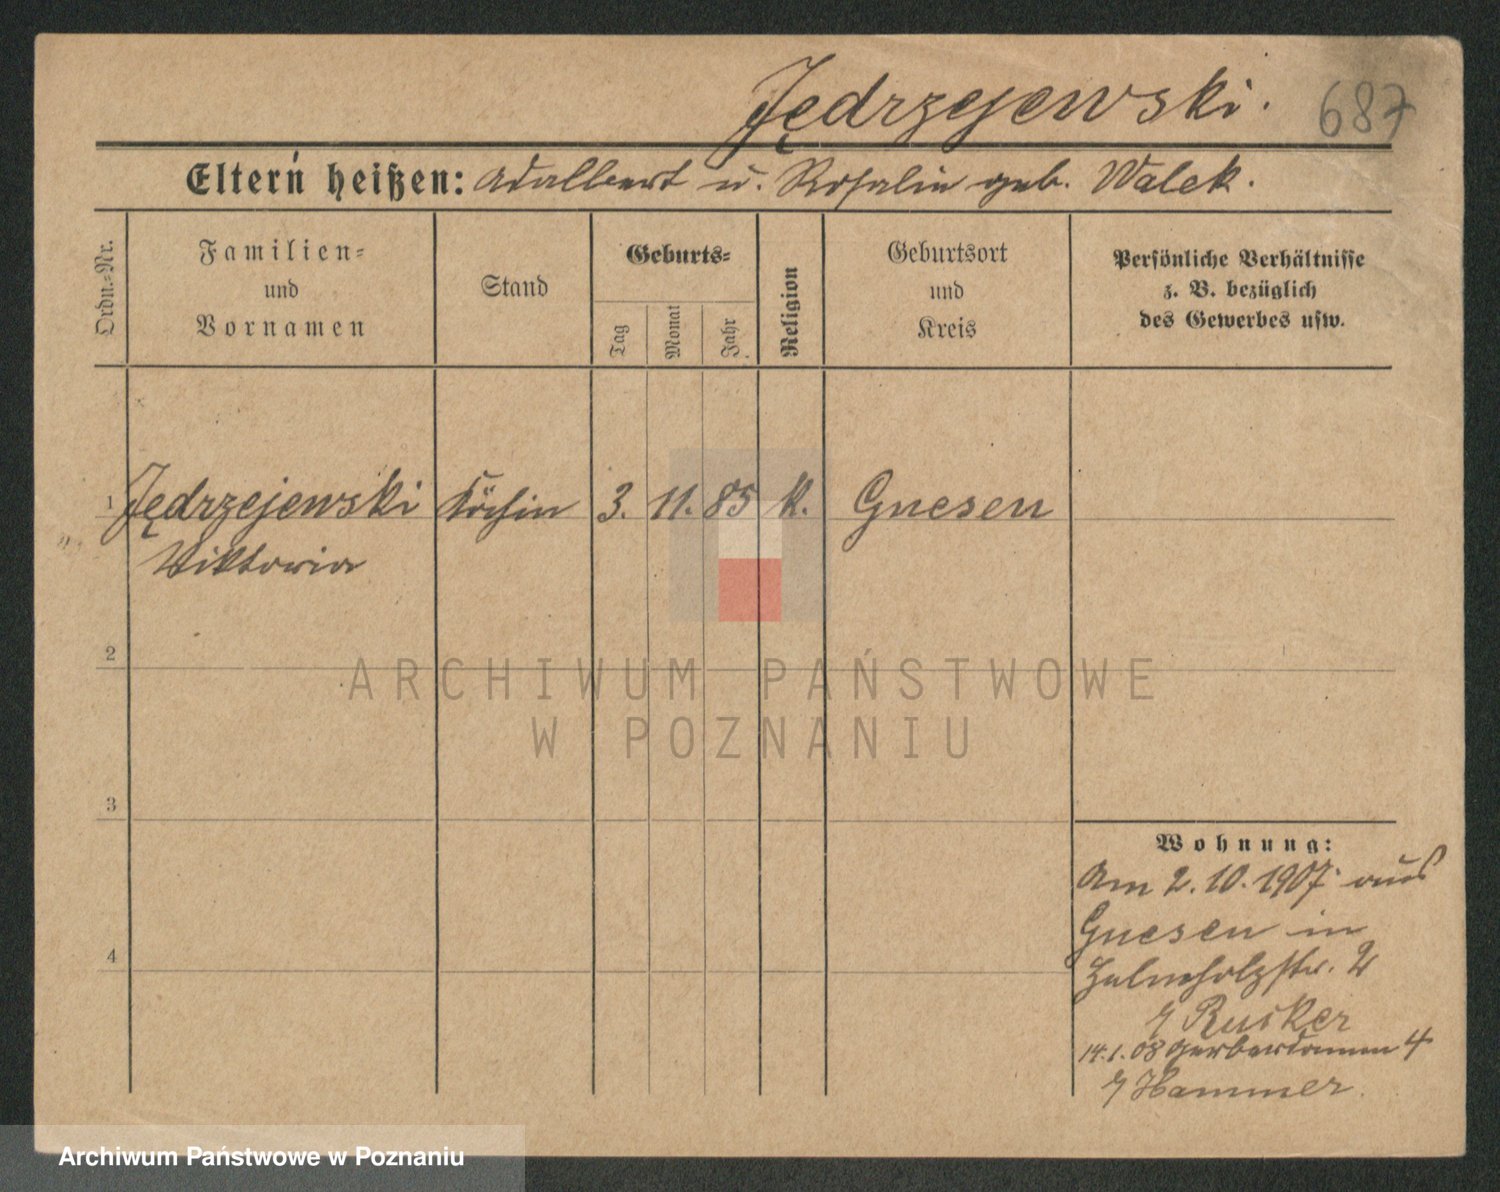 Jędrzejewski.
687
Eltern heißen: Adalbert u. Rosalie geb. Walek.
Ordn.=Nr.
Familien=
und
Vornamen
Stand
Geburts=
Tag
Monat
Jahr
Religion
Geburtsort
und
Kreis
Persönliche Verhältnisse
z. B. bezüglich
des Gewerbes usw.
1 Jędrzejewski Köchin 3. 11. 85 k. Gnesen
Viktoria
2
3
4
Wohnung:
Am 2.10.1907 aus
Gnesen in
2
Rusker
14.1.08 Gerberdamm 4
Hammer
ARCHIWUM PAŃSTWOWE
W POZNANIU
Archiwum Państwowe w Poznaniu